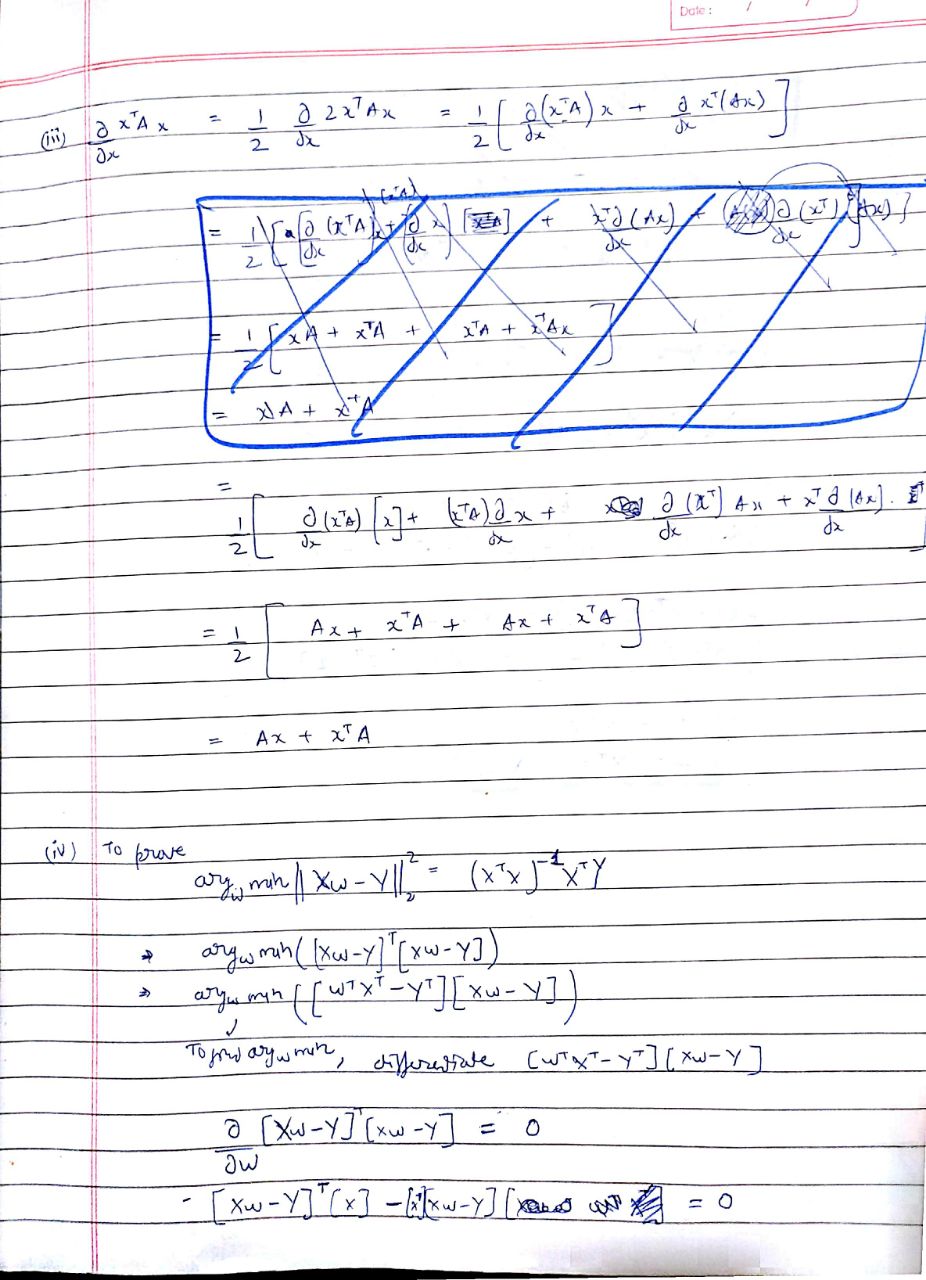 Date : / /
(iii) ∂/∂x xᵀAx = 1/2 ∂/∂x 2xᵀAx = 1/2 [ ∂/∂x (xᵀA) x + ∂/∂x xᵀ(Ax) ]
(xᵀA)
= 1/2 [ [∂/∂x (xᵀA)]x + [∂/∂x x] + xᵀ∂/∂x (Ax) + ∂/∂x (xᵀ) ](Ax) ]
= 1/2 [ xA + xᵀA + xᵀA + xᵀAx ]
= xA + xᵀA
=
1/2 [ ∂/∂x (xᵀA) [x] + (xᵀA) ∂/∂x x + ∂/∂x (xᵀ) Ax + xᵀ ∂/∂x (Ax). ]
= 1/2 [ Ax + xᵀA + Ax + xᵀA ]
= Ax + xᵀA
(iv) To prove
arg_w min || Xw - Y ||₂² = (XᵀX)⁻¹XᵀY
⇒ arg_w min ( [Xw-Y]ᵀ[Xw-Y] )
⇒ arg_w min ( [wᵀXᵀ - Yᵀ][Xw - Y] )
To find arg_w min, differentiate [wᵀXᵀ - Yᵀ][Xw - Y]
∂/∂w [Xw-Y]ᵀ[Xw-Y] = 0
- [Xw-Y]ᵀ[X] - [Xᵀ][Xw-Y] = 0